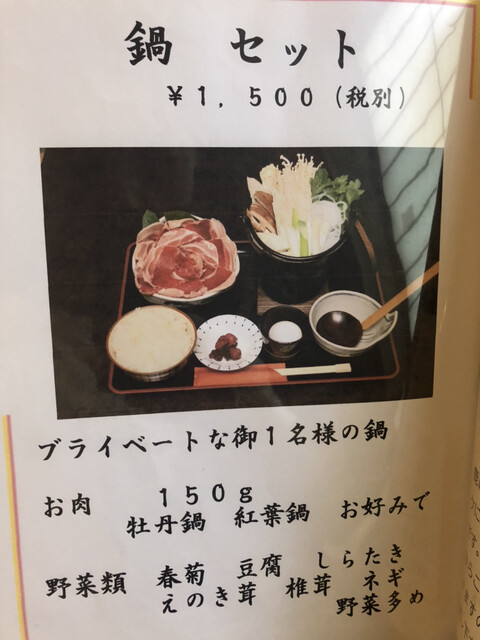 鍋 セット
￥1,500(税別)
プライベートな御1名様の鍋
お肉 150g
牡丹鍋 紅葉鍋 お好みで
野菜類 春菊 豆腐 しらたき
えのき茸 椎茸 ネギ
野菜多め